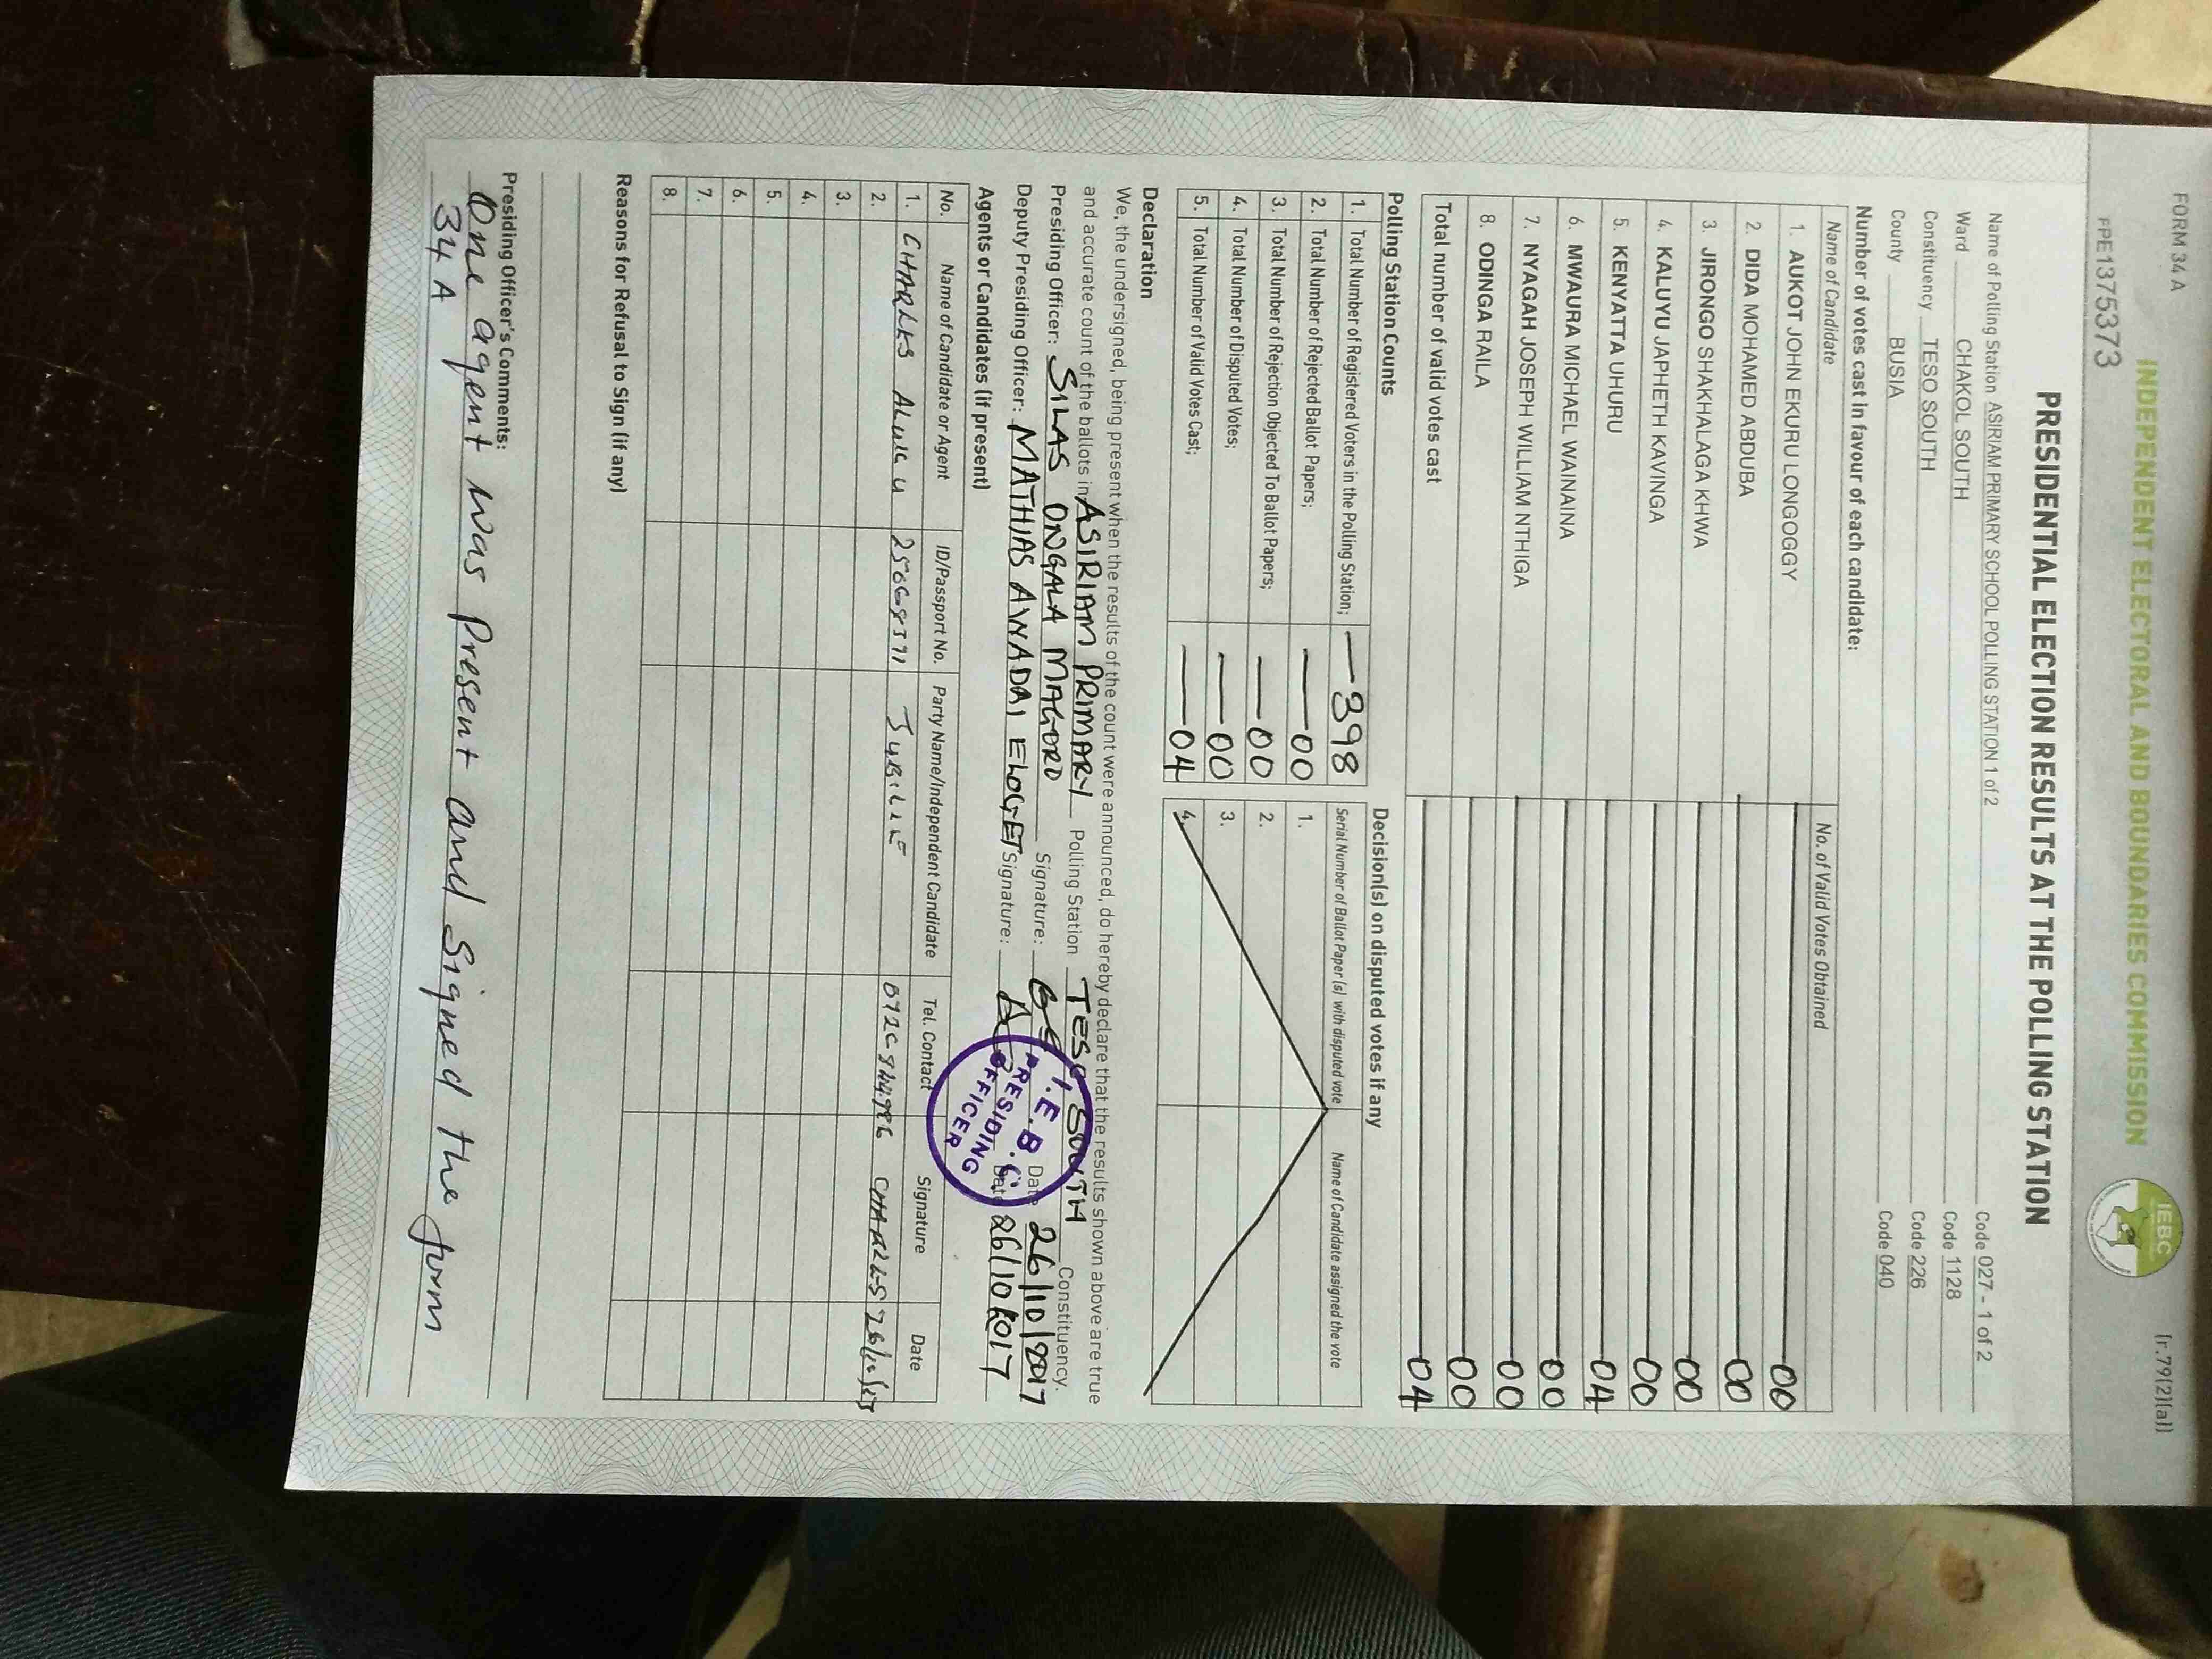 FORM 34 A
[r.79(2)(a)]
INDEPENDENT ELECTORAL AND BOUNDARIES COMMISSION
IEBC
PE1375373
PRESIDENTIAL ELECTION RESULTS AT THE POLLING STATION
Name of Polling Station ASIRIAM PRIMARY SCHOOL POLLING STATION 1 of 2 Code 027 - 1 of 2
Ward CHAKOL SOUTH Code 1128
Constituency TESO SOUTH Code 226
County BUSIA Code 040
Number of votes cast in favour of each candidate:
Name of Candidate No. of Valid Votes Obtained
1. AUKOT JOHN EKURU LONGOGGY 00
2. DIDA MOHAMED ABDUBA 00
3. JIRONGO SHAKHALAGA KHWA 00
4. KALUYU JAPHETH KAVINGA 00
5. KENYATTA UHURU 04
6. MWAURA MICHAEL WAINAINA 00
7. NYAGAH JOSEPH WILLIAM NTHIGA 00
8. ODINGA RAILA 00
Total number of valid votes cast 04
Polling Station Counts
1. Total Number of Registered Voters in the Polling Station; 398
2. Total Number of Rejected Ballot Papers; 00
3. Total Number of Rejection Objected To Ballot Papers; 00
4. Total Number of Disputed Votes; 00
5. Total Number of Valid Votes Cast; 04
Decision(s) on disputed votes if any
Serial Number of Ballot Paper (s) with disputed vote Name of Candidate assigned the vote
1.
2.
3.
4.
Declaration
We, the undersigned, being present when the results of the count were announced, do hereby declare that the results shown above are true
and accurate count of the ballots in ASIRIAM PRIMARY Polling Station TESO SOUTH Constituency.
Presiding Officer: SILAS ONGALA MAGORO Signature: Date 26/10/2017
Deputy Presiding Officer: MATHIAS AWADAI ELOGET Signature: Date 26/10/2017
I.E.B.C.
PRESIDING
OFFICER
Agents or Candidates (if present)
No. Name of Candidate or Agent ID/Passport No. Party Name/Independent Candidate Tel. Contact Signature Date
1. CHARLES JUBILEE CHARLES
2.
3.
4.
5.
6.
7.
8.
Reasons for Refusal to Sign (if any)
Presiding Officer's Comments:
One agent was present and signed the form
34 A